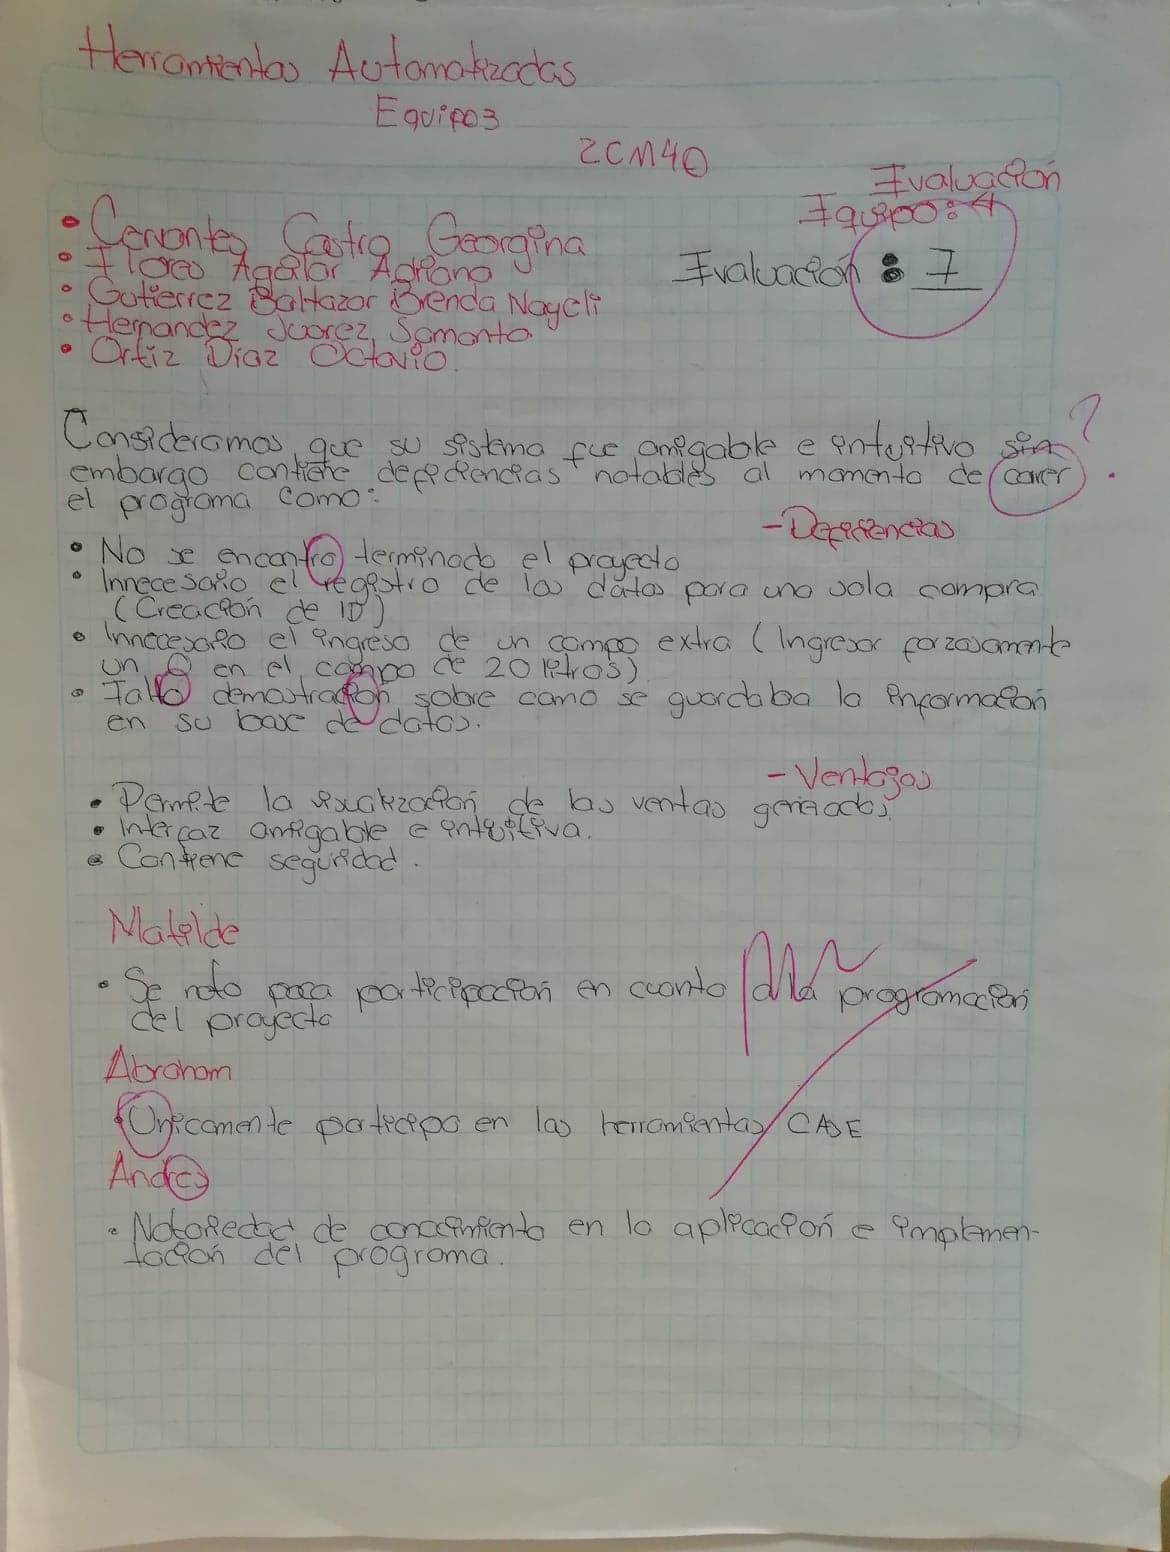 Herramientas Automatizadas
Equipo3
2CM40
Evaluación
Equipo: 4
Evaluación : 7
• Cervantes Castro Georgina
• Flores Aguilar Adriana
• Gutierrez Baltazar Brenda Nayeli
• Hernandez Juarez Samanta
• Ortiz Diaz Octavio.
Consideramos que su sistema fue amigable e intuitivo sin
embargo contiene deficiencias notables al momento de correr
el programa como:
?
- Deficiencias
• No se encontro terminado el proyecto
• Innecesario el registro de los datos para una sola compra
(Creación de ID)
• Innecesario el ingreso de un campo extra (Ingresar forzosamente
un 0 en el campo de 20 letros)
• Falto demostración sobre como se guardaba la información
en su base de datos.
- Ventajas
• Permite la visualización de las ventas generadas
• Interfaz amigable e intuitiva.
• Contiene seguridad.
Matilde
• Se noto poca participación en cuanto a la programación
del proyecto
Abraham
• Unicamente participo en las herramientas CASE
Andres
• Notoriedad de conocimiento en la aplicación e implemen-
tación del programa.